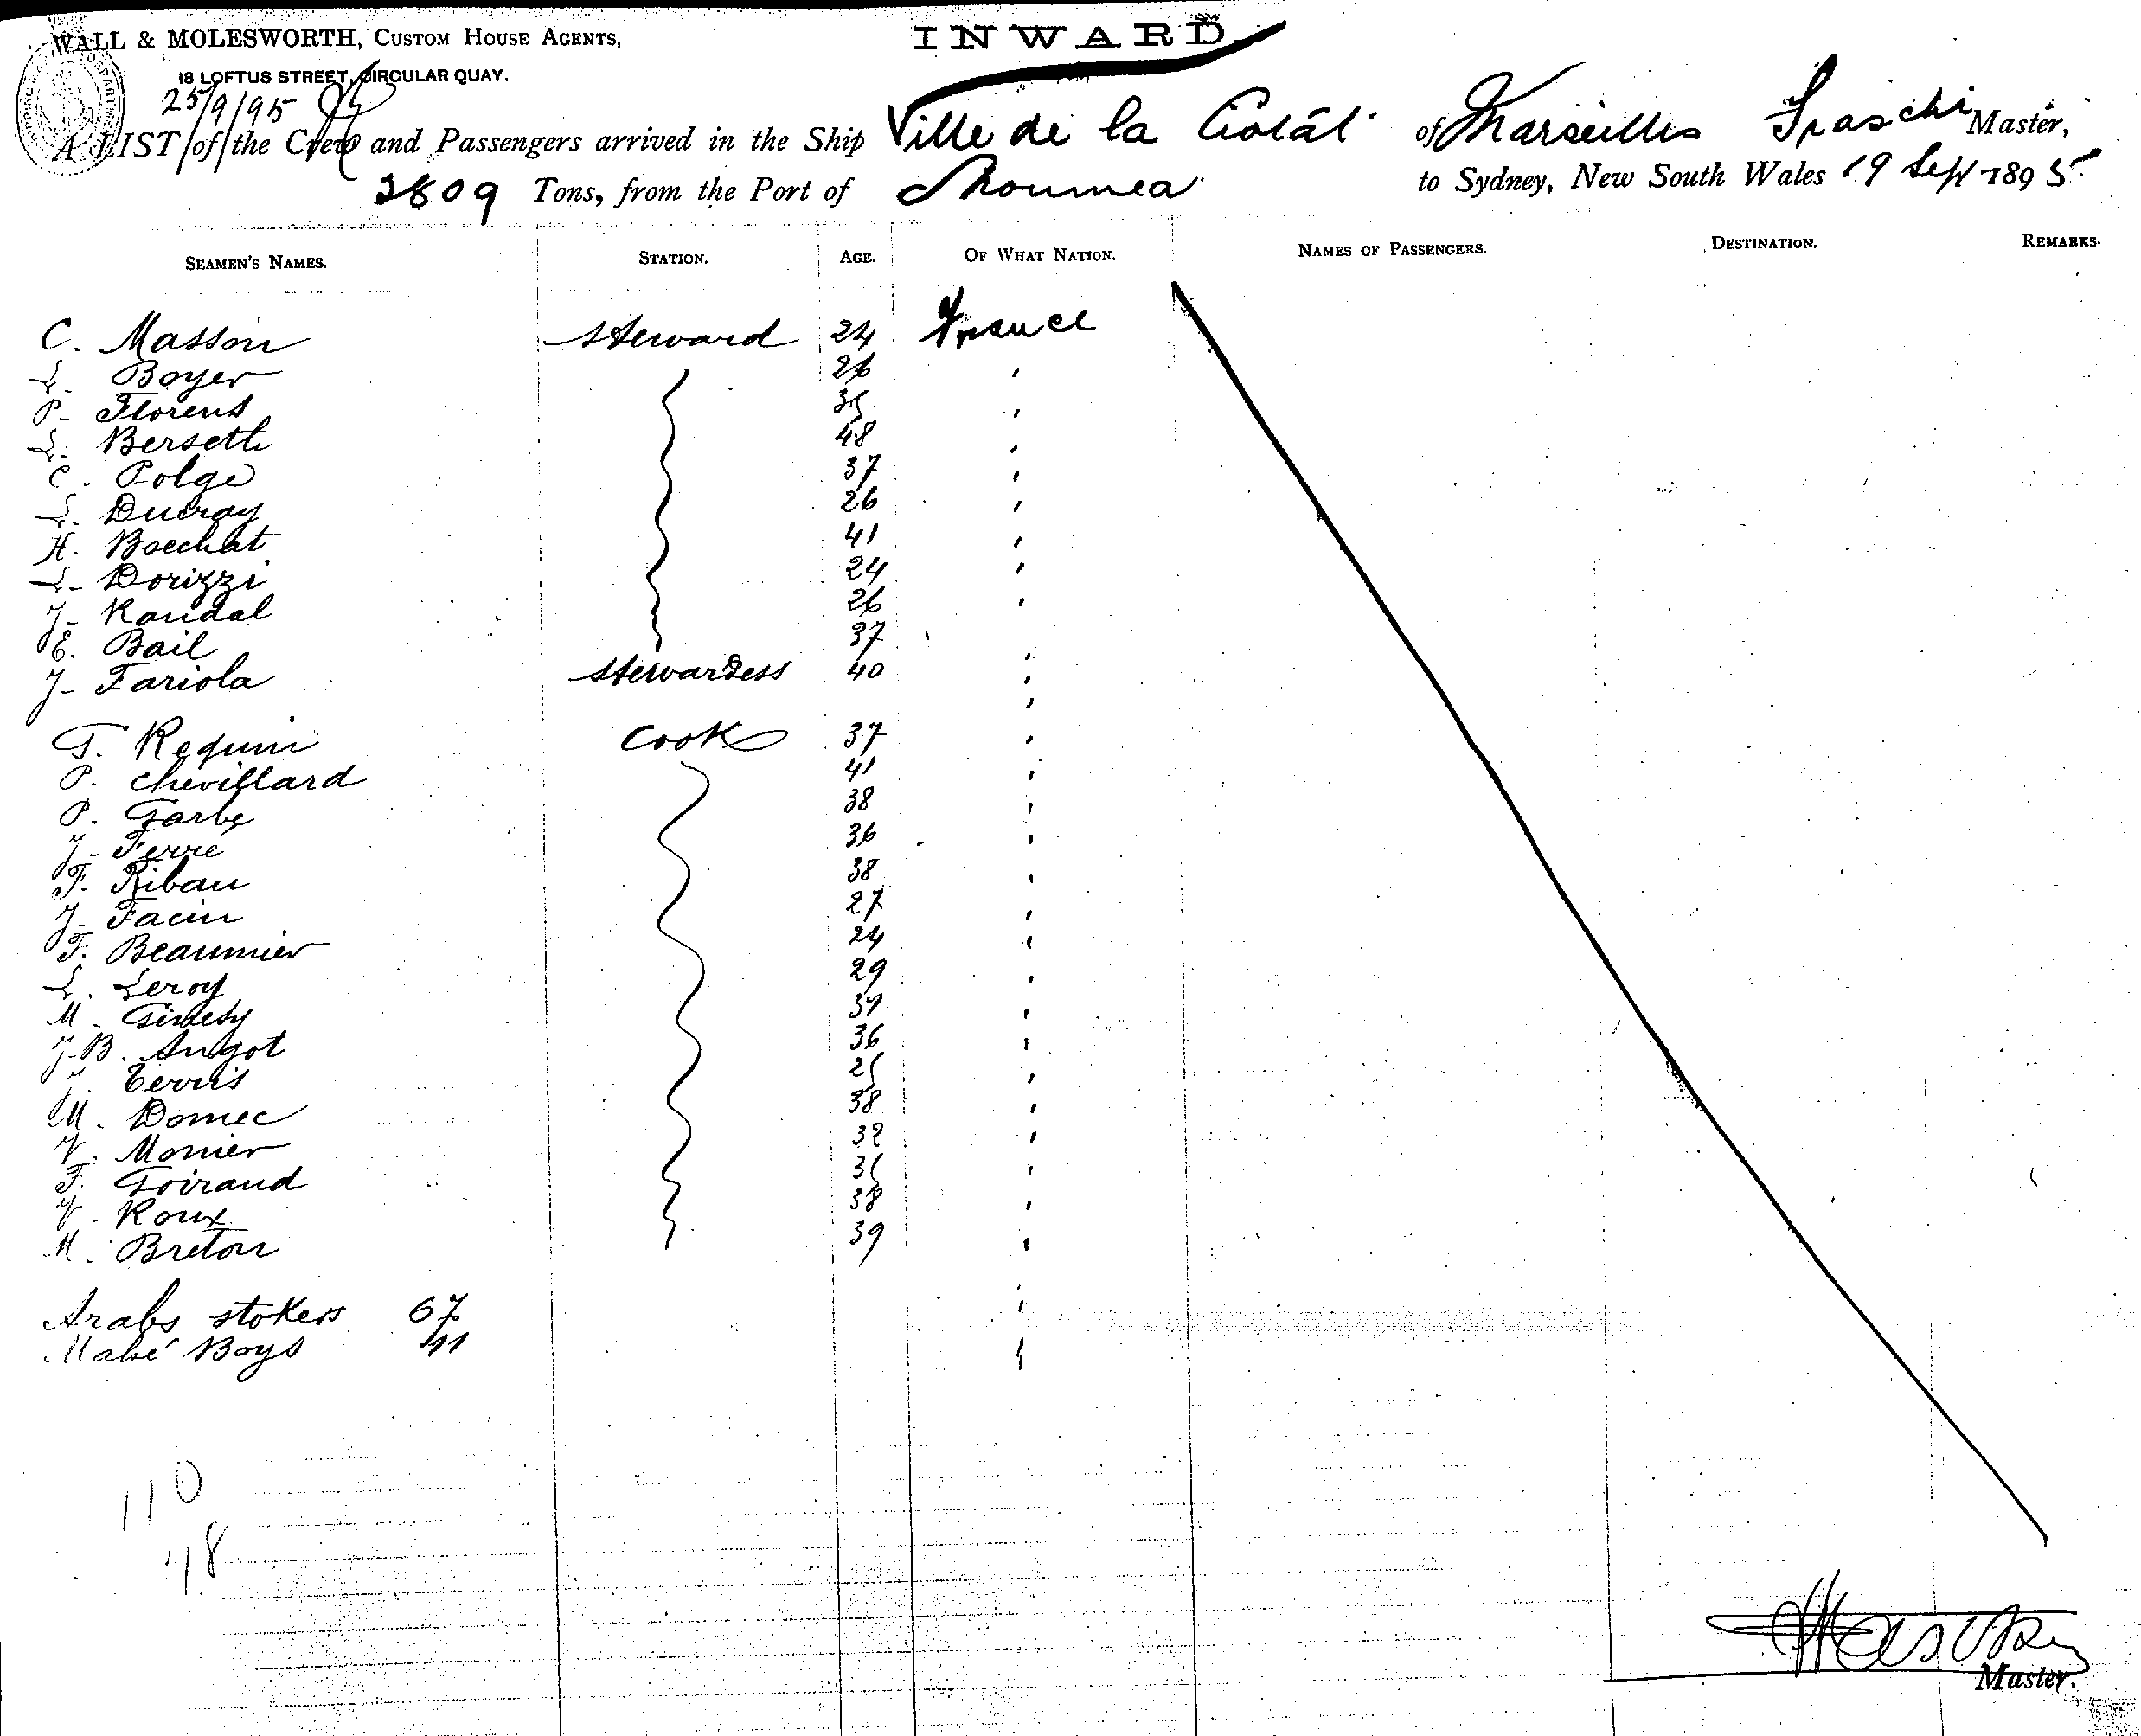 WALL & MOLESWORTH, CUSTOM HOUSE AGENTS,
18 LOFTUS STREET, CIRCULAR QUAY.
INWARD
25/9/95
A LIST of the Crew and Passengers arrived in the Ship Ville de la Ciotat of Marseilles Fraschi Master,
2809 Tons, from the Port of Noumea to Sydney, New South Wales 19 Sept 1895
SEAMEN'S NAMES. STATION. AGE. OF WHAT NATION. NAMES OF PASSENGERS. DESTINATION. REMARKS.
C. Masson Steward 24 France
L. Boyer 26 "
P. Florens 35 "
L. Berseth 48 "
C. Polge 37 "
L. Ducray 26 "
H. Boechat 41 "
L. Dorizzi 24 "
J. Randal 26 "
E. Bail 37 "
J. Fariola Stewardess 40 "
T. Requin Cook 37 "
P. Chevillard 41 "
P. Garbe 38 "
J. Ferré 36 "
F. Riban 38 "
J. Facin 27 "
F. Beaumier 24 "
L. Leroy 29 "
M. 37 "
J.B. Angot 36 "
J. 25 "
M. Domec 38 "
V. Monier 32 "
F. Goiraud 35 "
V. Roux 38 "
M. Breton 39 "
Arabs stokers 67 "
Mahé Boys 41 "
110
48
Master.